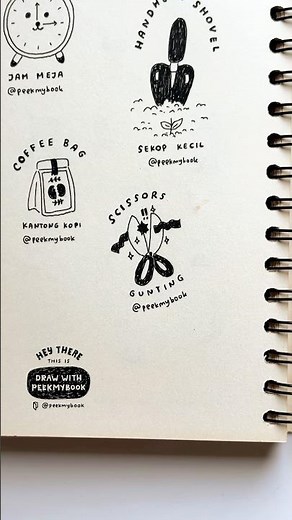 JAM MEJA
@peekmybook
HANDHELD SHOVEL
SEKOP KECIL
@peekmybook
COFFEE BAG
KANTONG KOPI
@peekmybook
SCISSORS
GUNTING
@peekmybook
HEY THERE
THIS IS
DRAW WITH
PEEKMYBOOK
@peekmybook